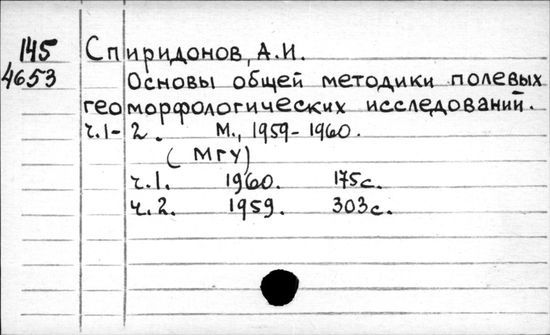 145 Спиридонов, А.И.
4653 Основы общей методики полевых
геоморфологических исследований.
ч.1-2. М., 1959-1960.
(МГУ)
ч.1. 1960. 175с.
ч.2. 1959. 303с.